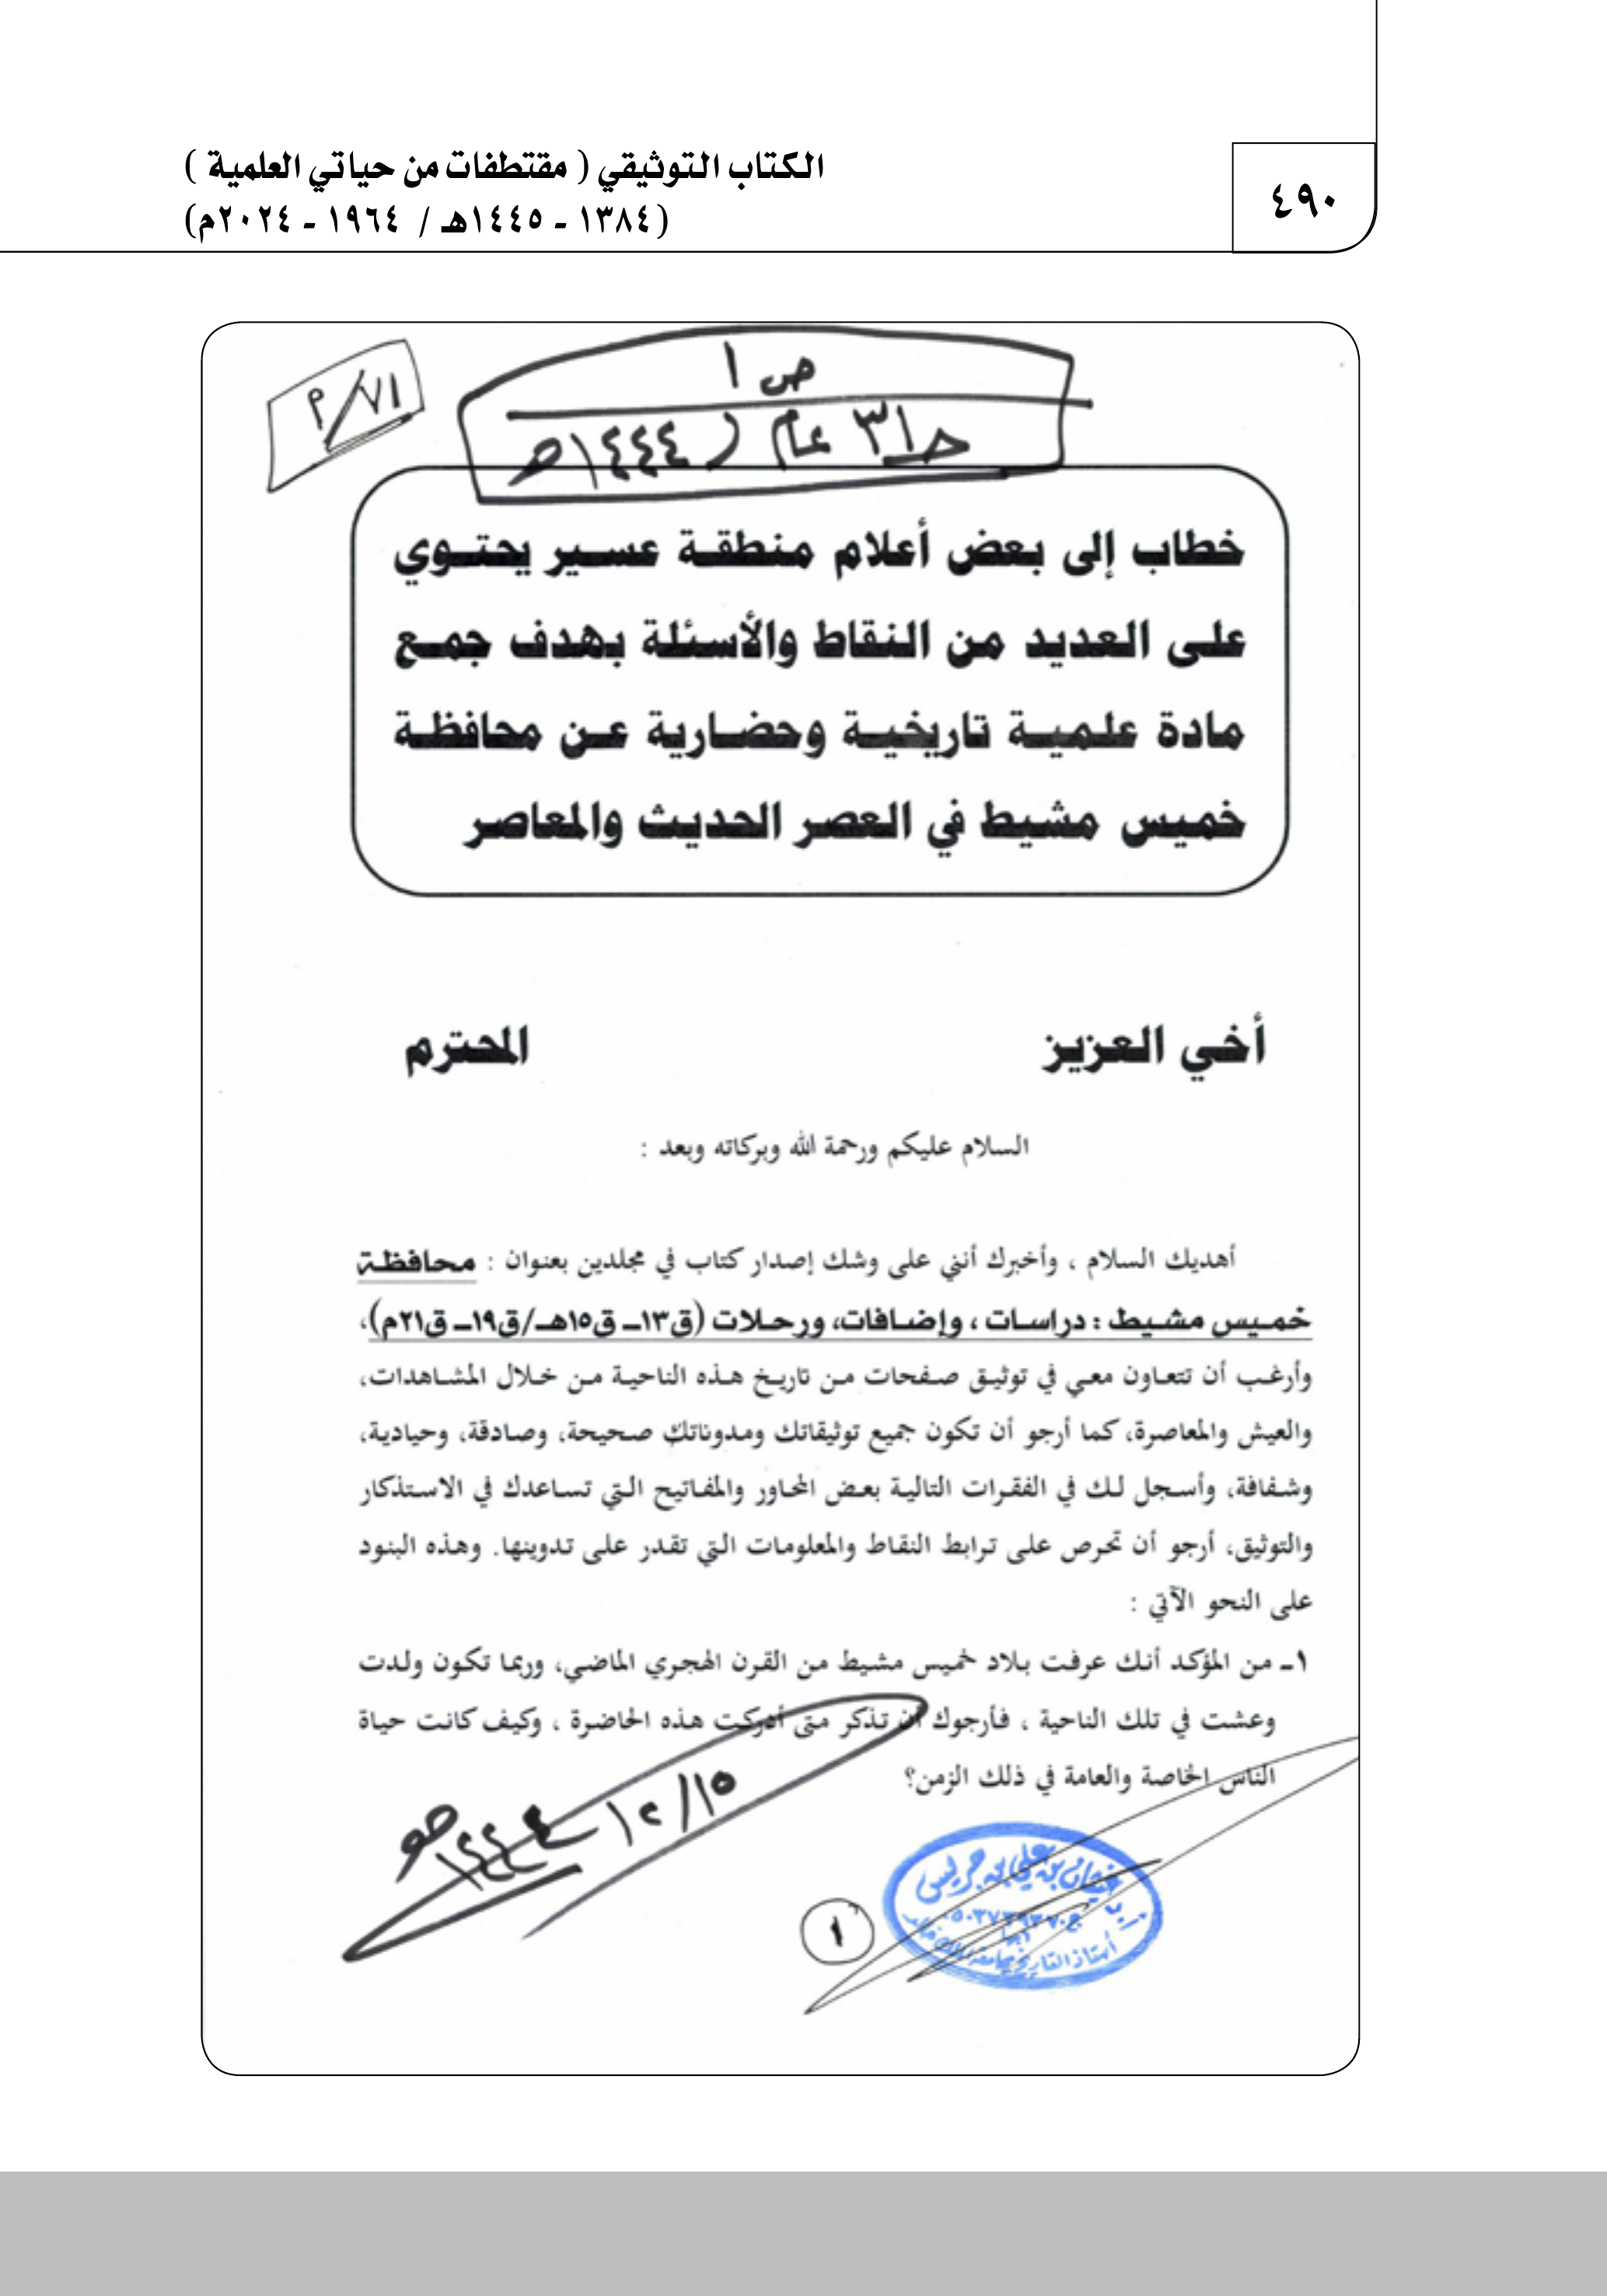 ٤٩٠
الكتاب التوثيقي ( مقتطفات من حياتي العلمية )
(١٣٨٤ - ١٤٤٥هـ / ١٩٦٤ - ٢٠٢٤م)
ص ١
٧١/م
ج٣١ عام (١٤٤٤هـ
خطاب إلى بعض أعلام منطقة عسير يحتوي
على العديد من النقاط والأسئلة بهدف جمع
مادة علمية تاريخية وحضارية عن محافظة
خميس مشيط في العصر الحديث والمعاصر
أخي العزيز المحترم
السلام عليكم ورحمة الله وبركاته وبعد :
أهديك السلام ، وأخبرك أنني على وشك إصدار كتاب في مجلدين بعنوان : محافظة
خميس مشيط : دراسات ، وإضافات، ورحلات (ق١٣ـ ق١٥هـ/ق١٩ـ ق٢١م)،
وأرغب أن تتعاون معي في توثيق صفحات من تاريخ هذه الناحية من خلال المشاهدات،
والعيش والمعاصرة، كما أرجو أن تكون جميع توثيقاتك ومدوناتك صحيحة، وصادقة، وحيادية،
وشفافة، وأسجل لك في الفقرات التالية بعض المحاور والمفاتيح التي تساعدك في الاستذكار
والتوثيق، أرجو أن تحرص على ترابط النقاط والمعلومات التي تقدر على تدوينها. وهذه البنود
على النحو الآتي :
١ـ من المؤكد أنك عرفت بلاد خميس مشيط من القرن الهجري الماضي، وربما تكون ولدت
وعشت في تلك الناحية ، فأرجوك أن تذكر متى أدركت هذه الحاضرة ، وكيف كانت حياة
الناس الخاصة والعامة في ذلك الزمن؟
١٥/١٢/١٤٤٤هـ
غيثان بن علي بن جريس
أستاذ التاريخ بجامعة الملك خالد
١